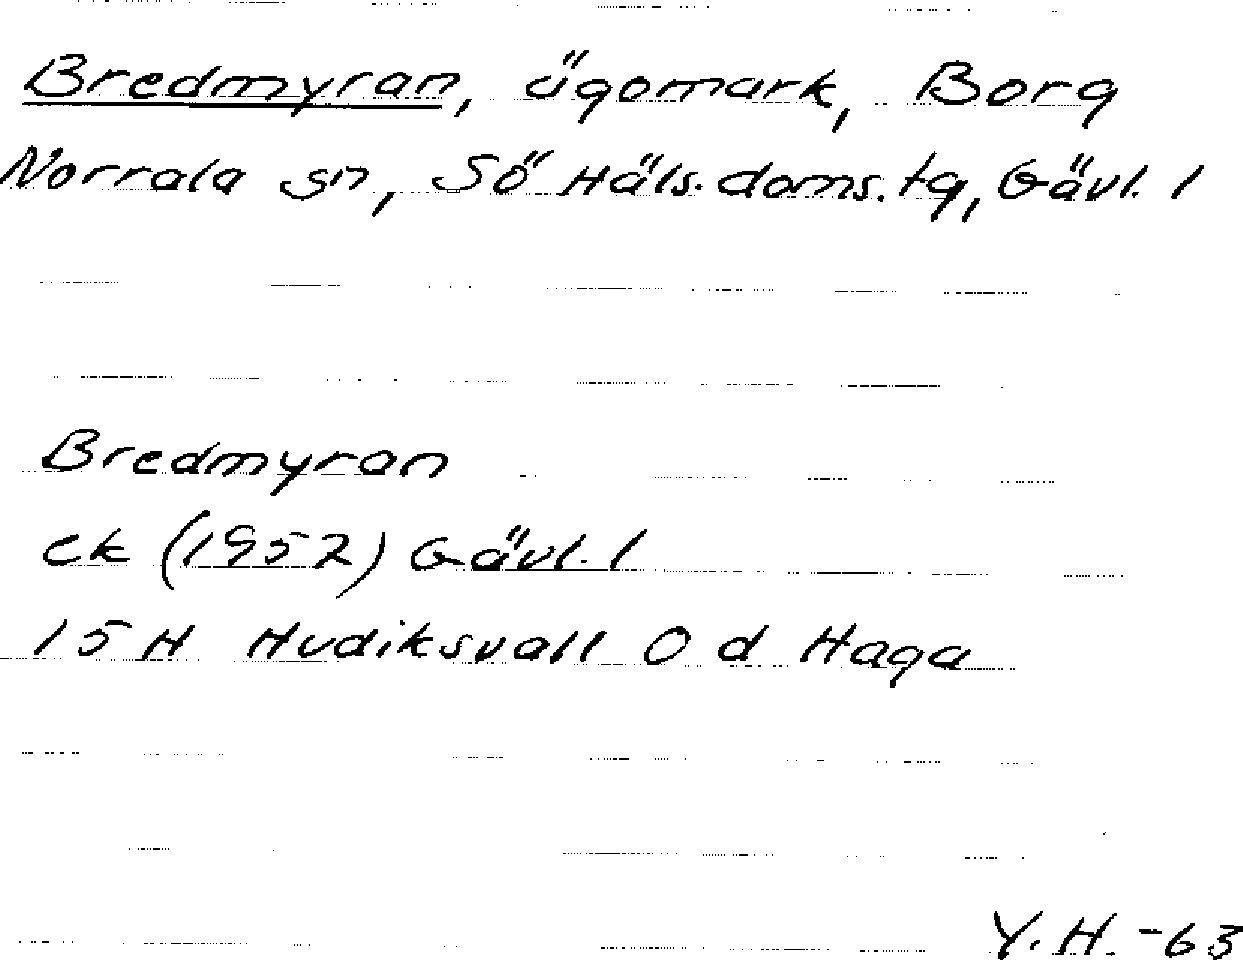 Bredmyran, ägomark, Borg
Norrala sn, Sö Häls. doms. tg, Gävl. l
Bredmyran
ek (1952) Gävl. l
15 H Hudiksvall O d Haga
Y. H. -63